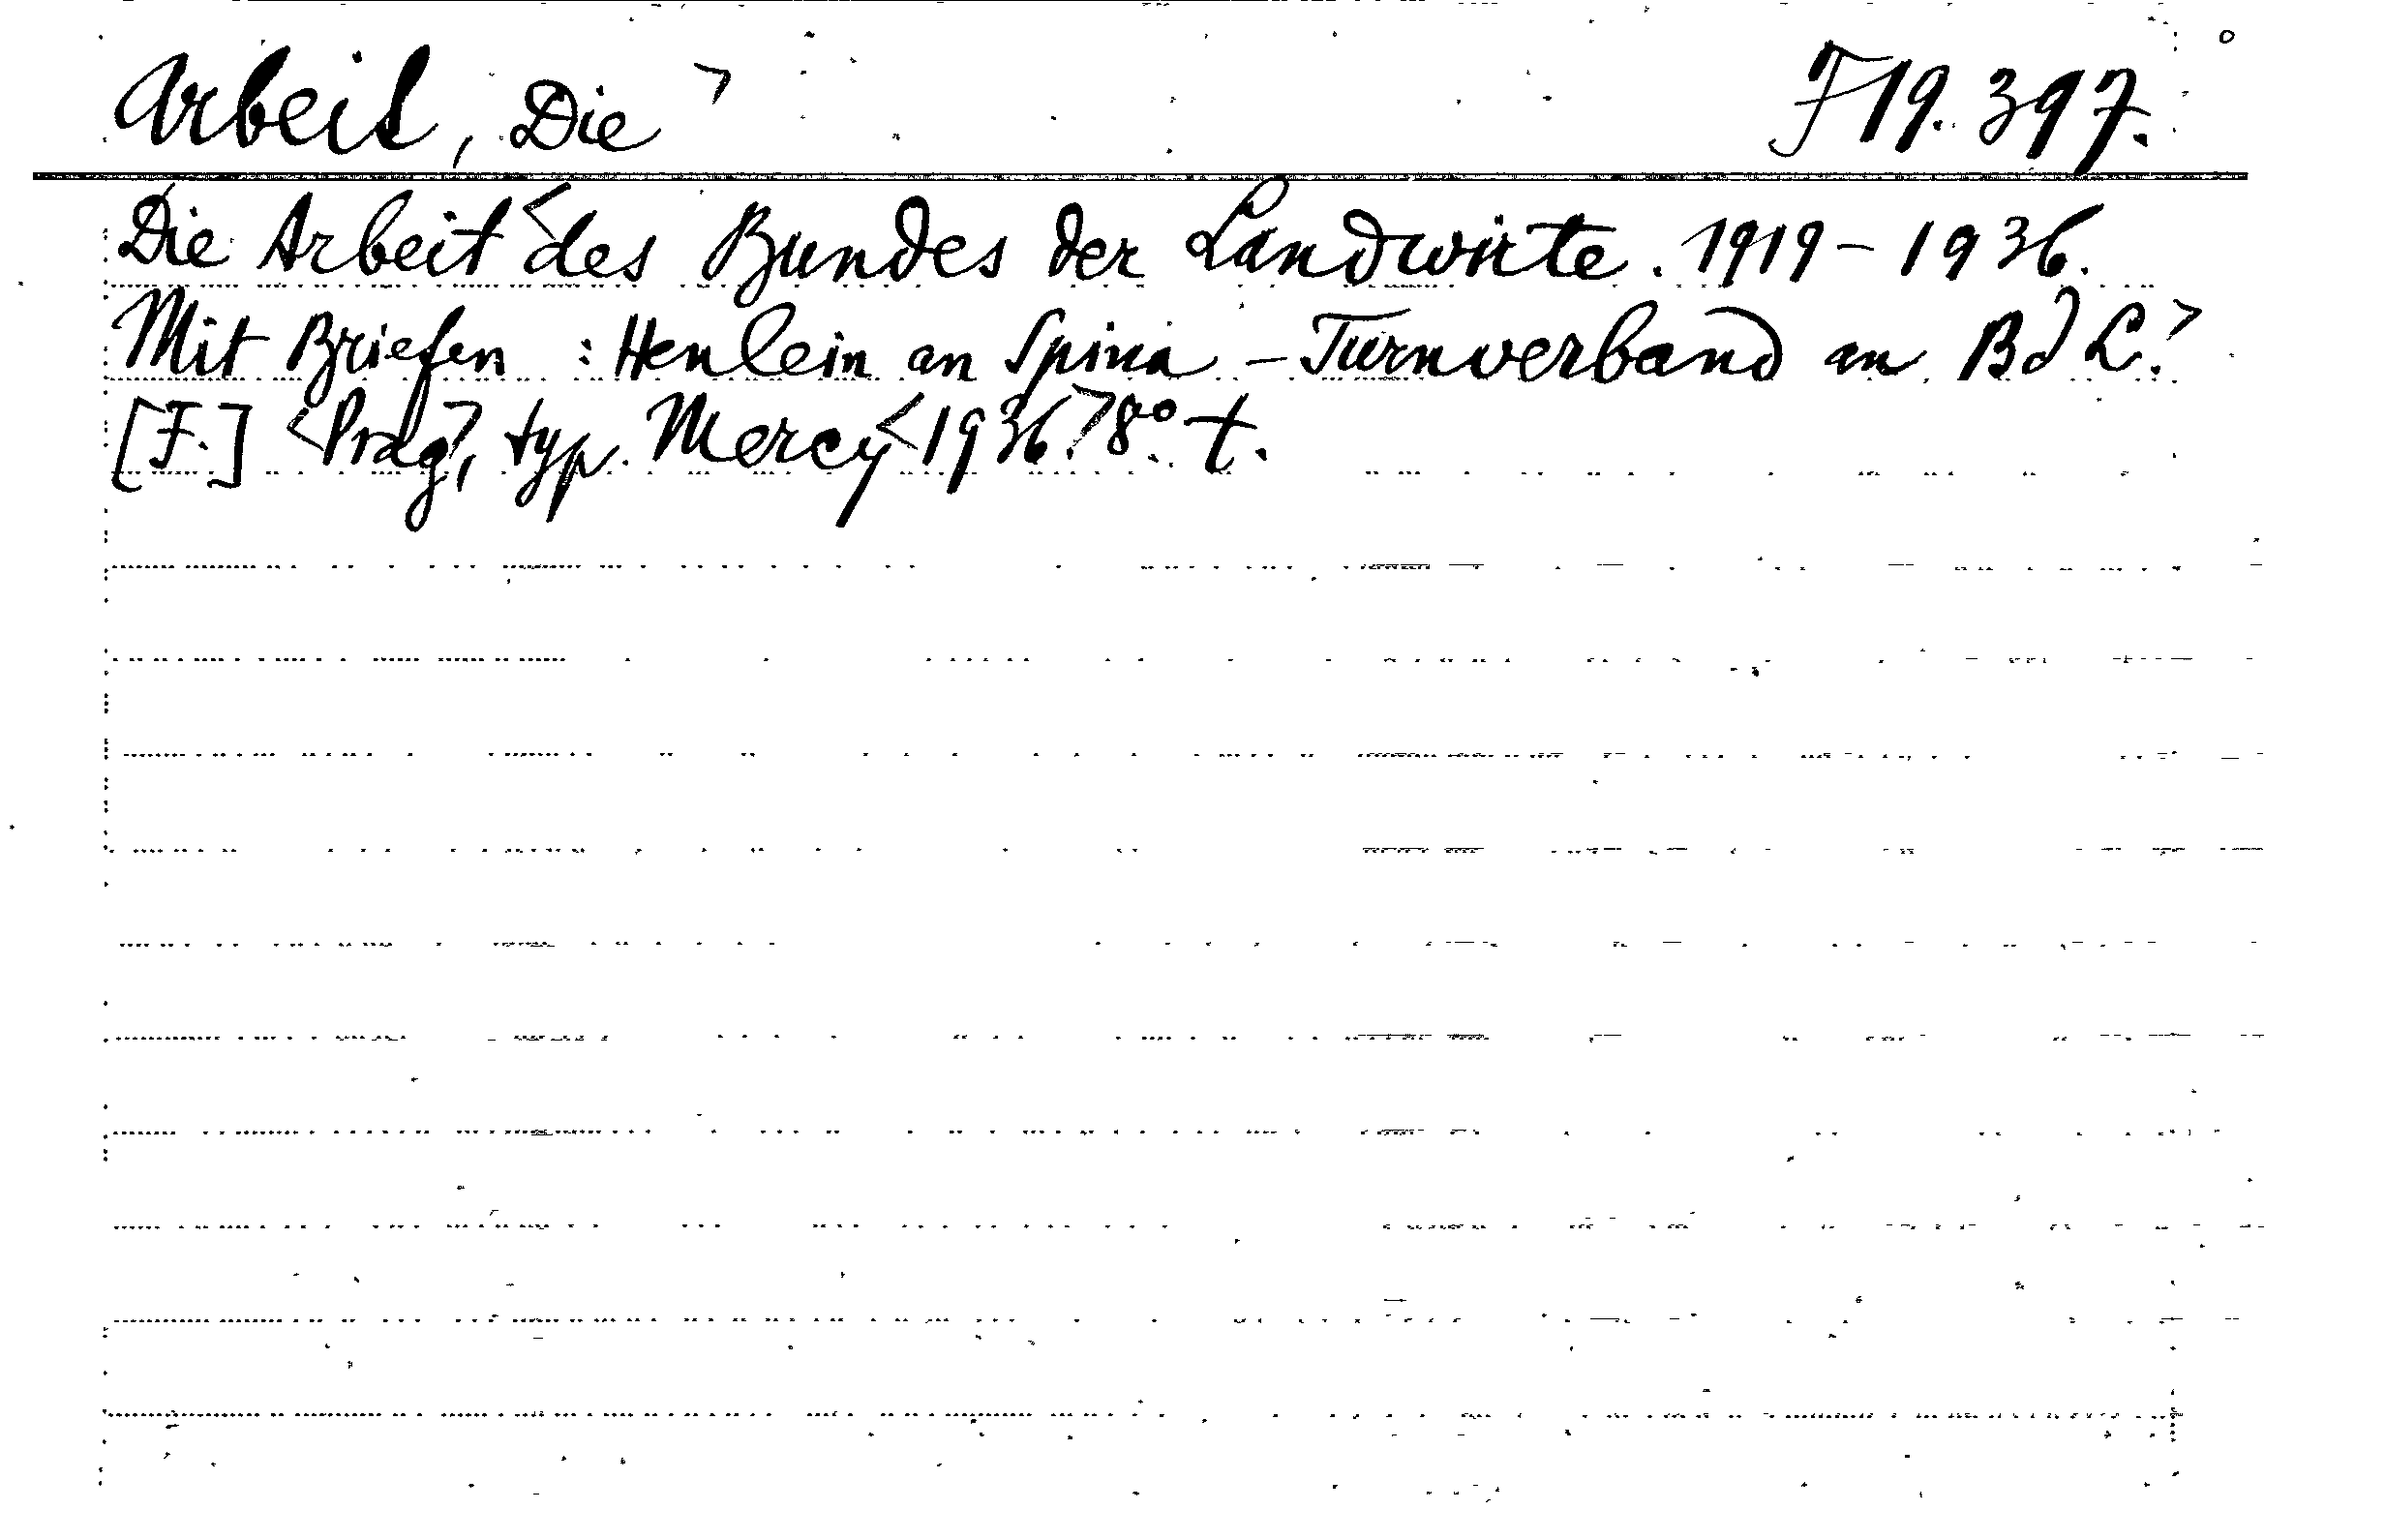 Arbeit, Die > F 19.397.
Die Arbeit < des Bundes der Landwirte. 1919-1936.
Mit Briefen : Henlein an Spina - Turnverband an BdL. >
[F.] <Prag>, typ. Mercy <1936.> 8°. t.